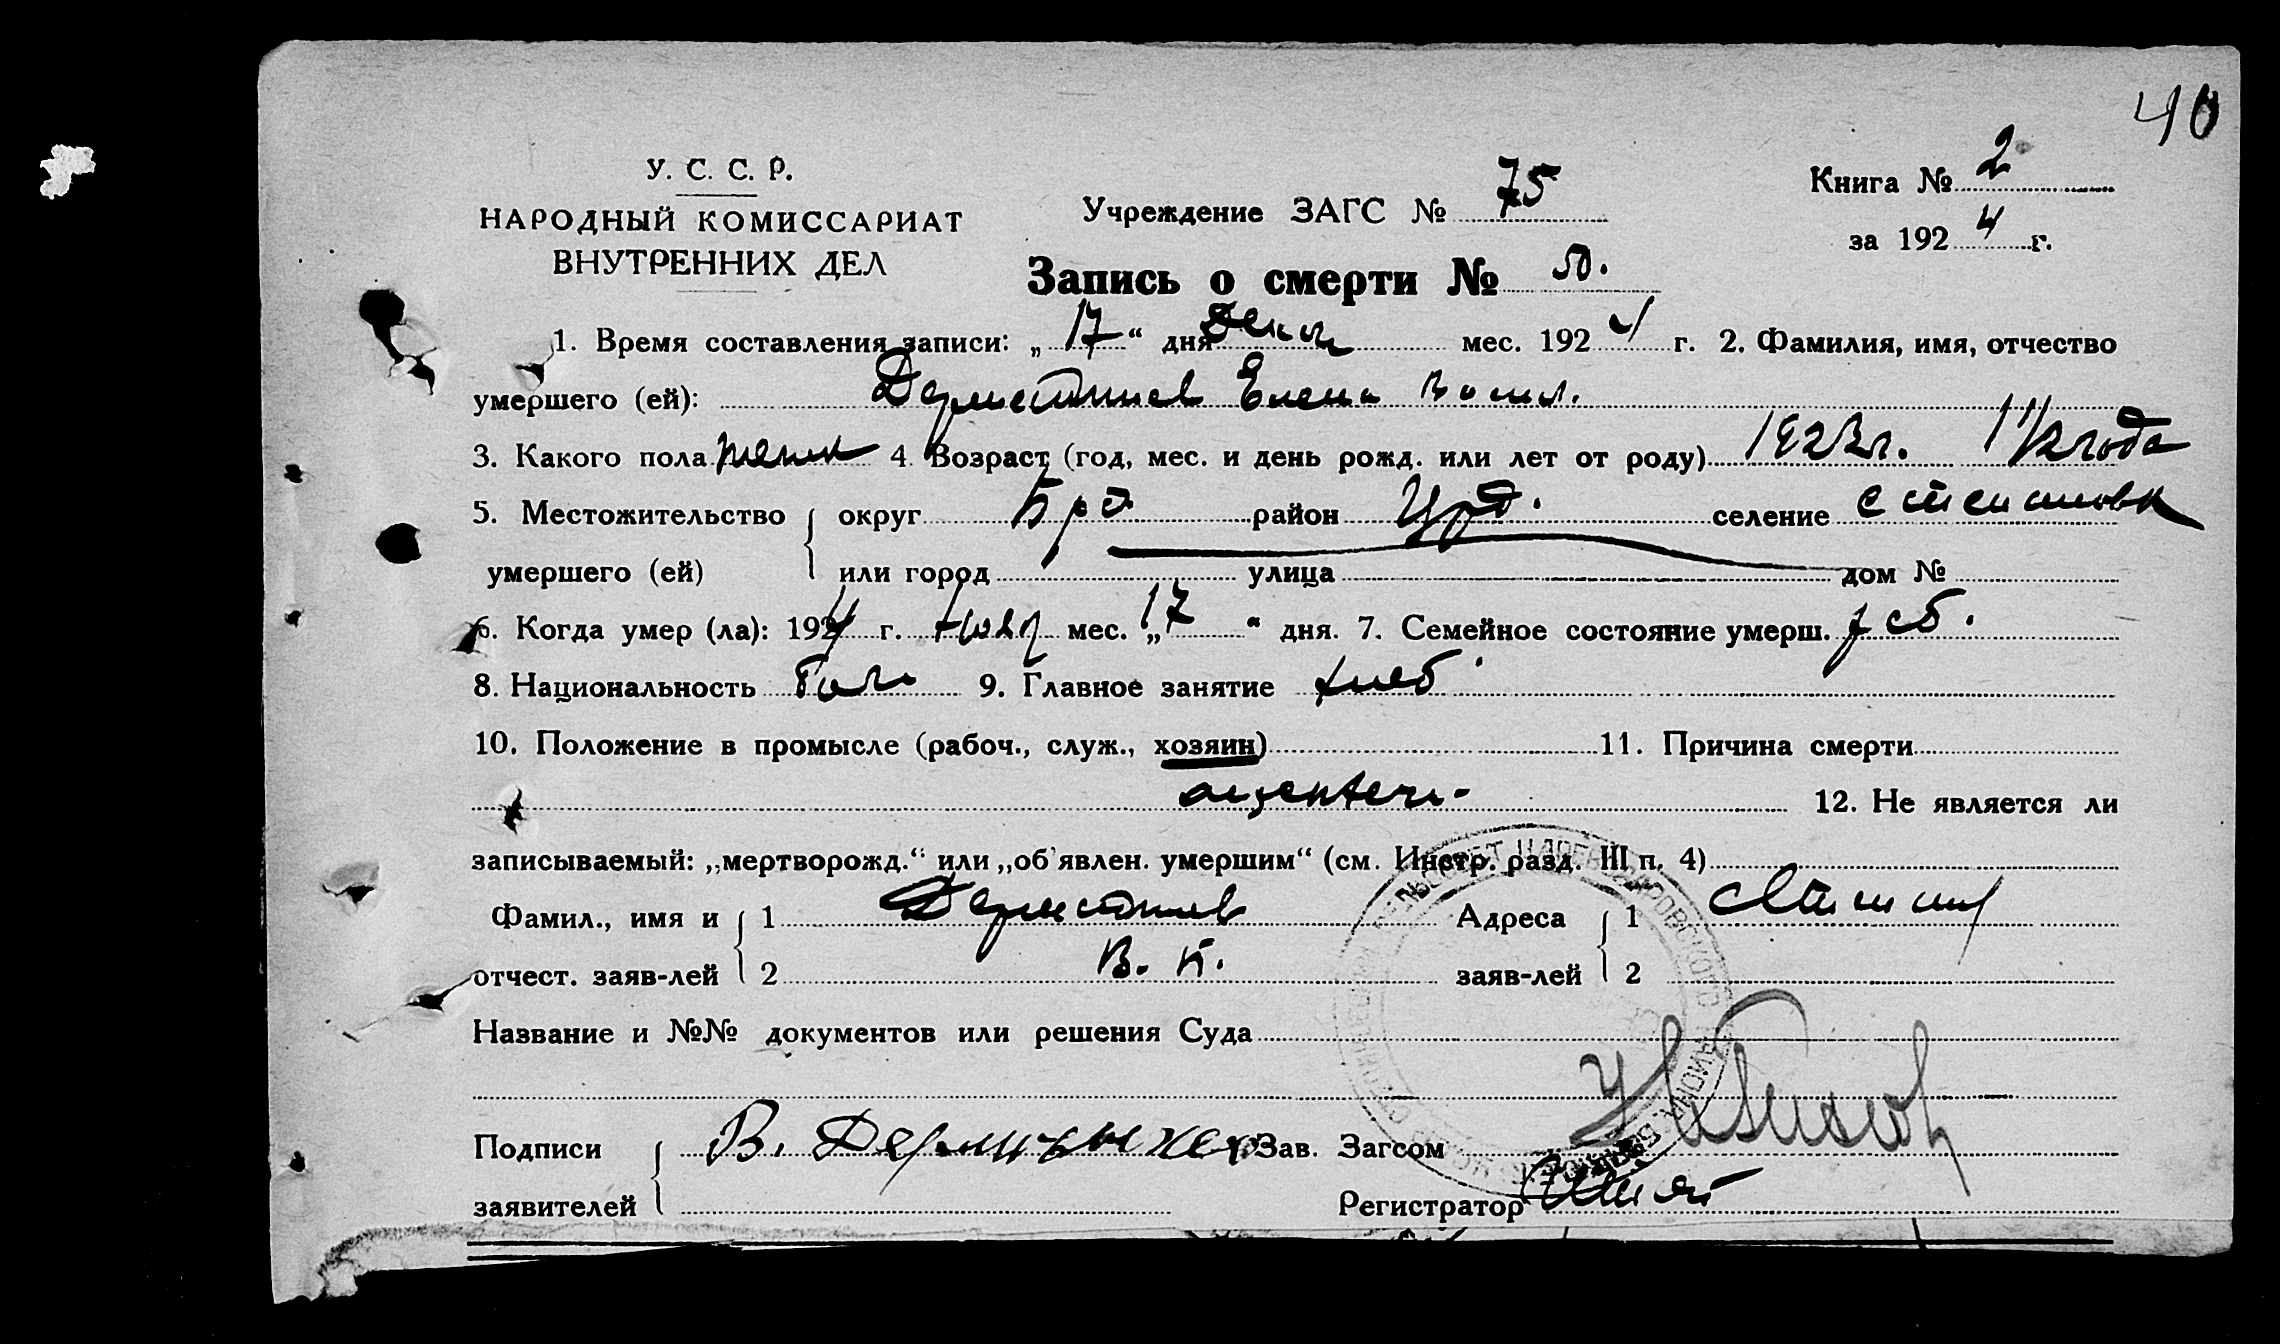 40
У. С. С. Р.
НАРОДНЫЙ КОМИССАРИАТ
ВНУТРЕННИХ ДЕЛ
Учреждение ЗАГС № 75
Книга № 2
за 1924 г.
Запись о смерти № 50.
1. Время составления записи: „17“ дня мес. 1924 г. 2. Фамилия, имя, отчество
умершего (ей): Елена Васил.
3. Какого пола женск 4. Возраст (год, мес. и день рожд. или лет от роду) 1923 г. 1 1/2 года
5. Местожительство округ Брд. район Црд. селение Степановка
умершего (ей) или город улица дом №
6. Когда умер (ла): 1924 г. Нояб мес. „17“ дня. 7. Семейное состояние умерш.
8. Национальность Болг 9. Главное занятие хлеб.
10. Положение в промысле (рабоч., служ., хозяин) 11. Причина смерти
12. Не является ли
записываемый: „мертворожд.“ или „об'явлен. умершим“ (см. Инстр. разд. III п. 4)
Фамил., имя и 1 Адреса 1
отчест. заяв-лей 2 В. К. заяв-лей 2
Название и №№ документов или решения Суда
Подписи В. Зав. Загсом
заявителей Регистратор